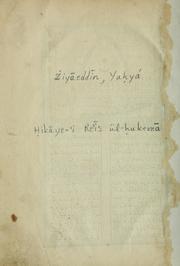 Żiyāeddīn, Yaḥyá
Ḥikāye-'i Re'īs ül-ḥukemā